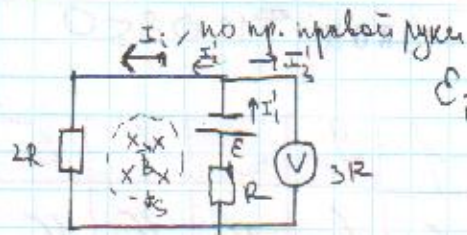 Iᵢ, по пр. правой руки
I₂' I₃'
ℰᵢ
I₁'
2R
x x
B
x x
S
ℰ
R
V
3R